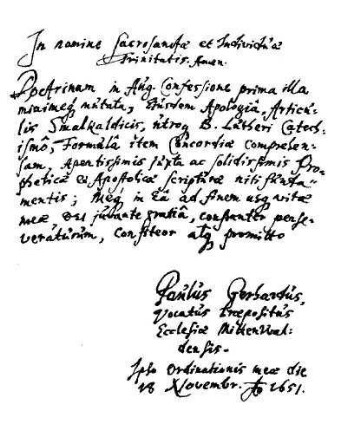 In nomine Sacrosanctæ et Individuæ
Trinitatis. Amen.
Doctrinam in Aug. Confessione prima illa
minimeq mutata, Ejusdem Apologiâ, Articu-
lis Smalkaldicis, utroq B. Lutheri Catech-
ismô, Formulâ item Concordiæ comprehen-
sam, apertissimis juxta ac solidissimis Pro-
pheticæ & Apostolicæ Scripturæ niti funda-
mentis; Meq in Eâ ad finem usq vitæ
meæ DEI juvante gratiâ, constanter perse-
veraturum, confiteor atq promitto
Paulus Gerhardus,
vocatus Præpositus
Ecclesiæ Mittenwal-
densis.
Ipso Ordinationis meæ die
18 Novembr. Ao 1651.